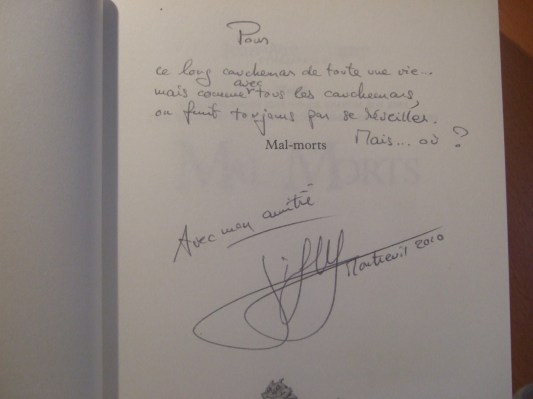 Pour
ce long cauchemar de toute une vie...
avec
mais comme tous les cauchemars,
on finit toujours par se réveiller.
Mais... où ?
Mal-morts
MAL MORTS
Avec mon amitié
Montreuil 2010